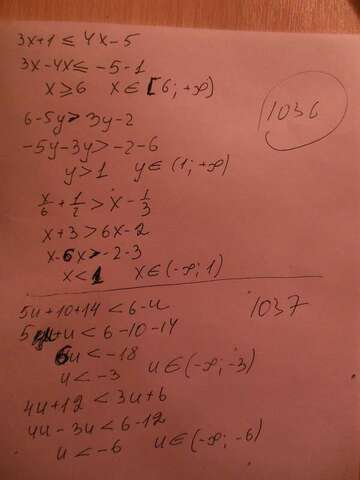 3x+1 ≤ 4x-5
3x-4x ≤ -5-1
x ≥ 6 x ∈ [6; +∞)
1036
6-5y > 3y-2
-5y-3y > -2-6
y > 1 y ∈ (1; +∞)
x/6 + 1/2 > x - 1/3
x+3 > 6x-2
x-6x > -2-3
x < 1 x ∈ (-∞; 1)
1037
5u+10+14 < 6-u
5u+u < 6-10-14
6u < -18
u < -3 u ∈ (-∞; -3)
4u+12 < 3u+6
4u-3u < 6-12
u < -6 u ∈ (-∞; -6)